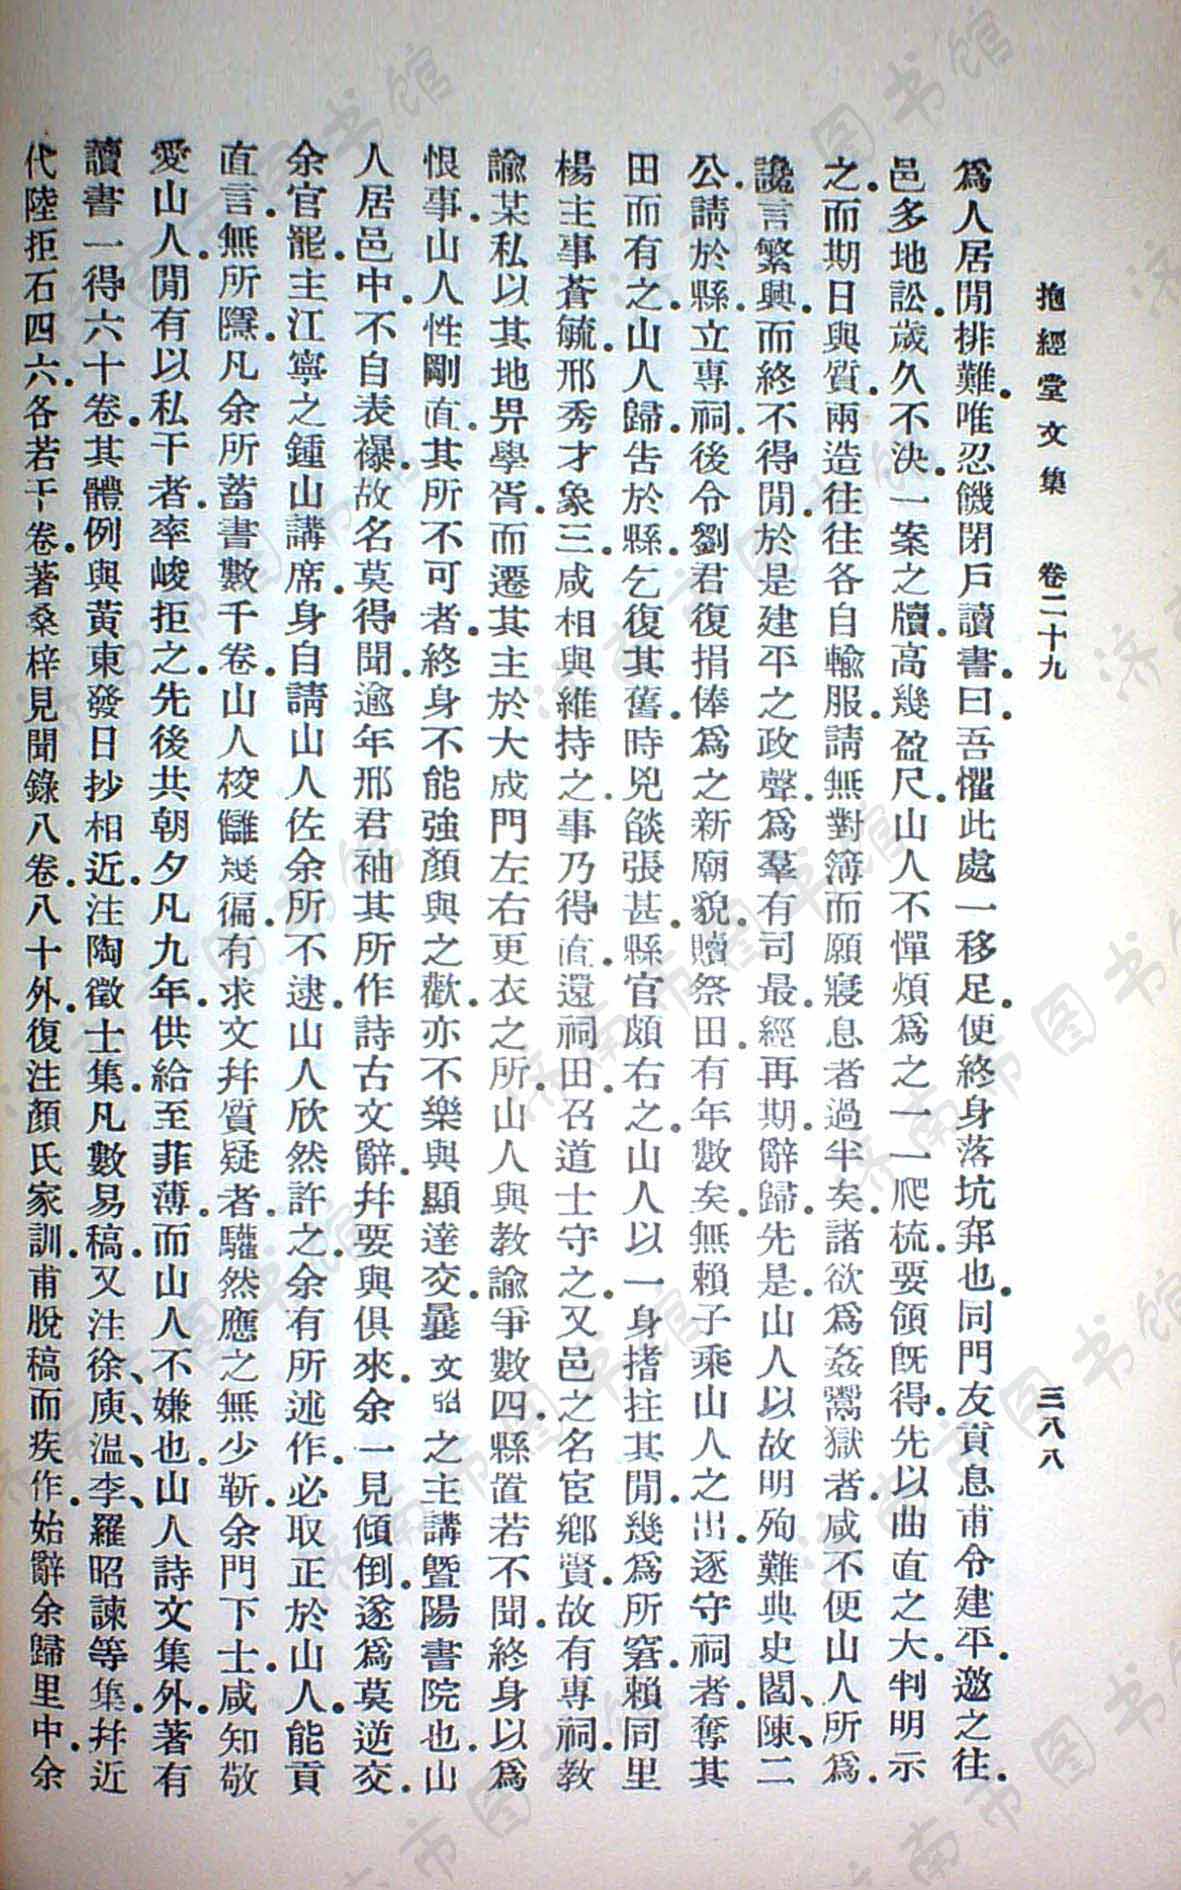 抱經堂文集　卷二十九　三八八
爲人居閒排難唯忍饑閉戶讀書曰吾懼此處一移足便終身落坑穽也同門友貢息甫令建平邀之往
邑多地訟歲久不決一案之牘高幾盈尺山人不憚煩爲之一一爬梳要領旣得先以曲直之大判明示
之而期日與質兩造往往各自輸服請無對簿而願寢息者過半矣諸欲爲姦鬻獄者咸不便山人所爲
讒言繁興而終不得閒於是建平之政聲爲羣有司最經再期辭歸先是山人以故明殉難典史閻、陳二
公請於縣立專祠後令劉君復捐俸爲之新廟貌贖祭田有年數矣無賴子乘山人之出逐守祠者奪其
田而有之山人歸告於縣乞復其舊時兇燄張甚縣官頗右之山人以一身搘拄其閒幾爲所窘賴同里
楊主事蒼毓邢秀才象三咸相與維持之事乃得直還祠田召道士守之又邑之名宦鄉賢故有專祠教
諭某私以其地畀學胥而遷其主於大成門左右更衣之所山人與教諭爭數四縣置若不聞終身以爲
恨事山人性剛直其所不可者終身不能強顏與之歡亦不樂與顯達交曩文弨之主講暨陽書院也山
人居邑中不自表襮故名莫得聞逾年邢君袖其所作詩古文辭幷要與俱來余一見傾倒遂爲莫逆交
余官罷主江寧之鍾山講席身自請山人佐余所不逮山人欣然許之余有所述作必取正於山人能貢
直言無所隱凡余所蓄書數千卷山人校讎幾徧有求文幷質疑者驩然應之無少靳余門下士咸知敬
愛山人閒有以私干者率峻拒之先後共朝夕凡九年供給至菲薄而山人不嫌也山人詩文集外著有
讀書一得六十卷其體例與黃東發日抄相近注陶徵士集凡數易稿又注徐、庾、溫、李、羅昭諫等集幷近
代陸拒石四六各若干卷著桑梓見聞錄八卷八十外復注顏氏家訓甫脫稿而疾作始辭余歸里中余